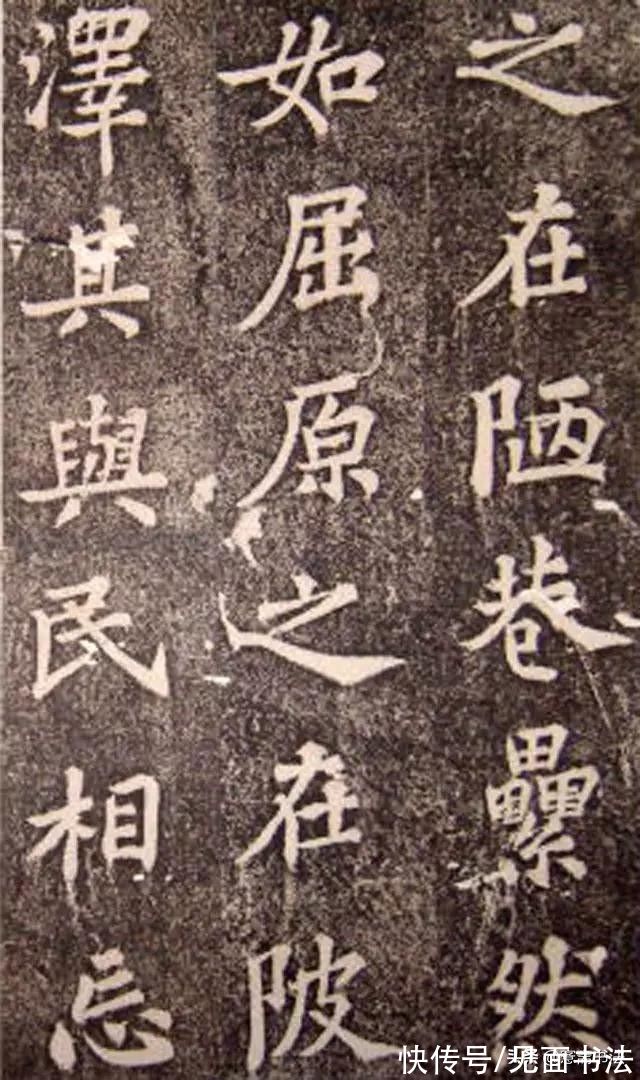 之在陋巷纍然
如屈原之在陂
澤其與民相忘
快传号/见面书法